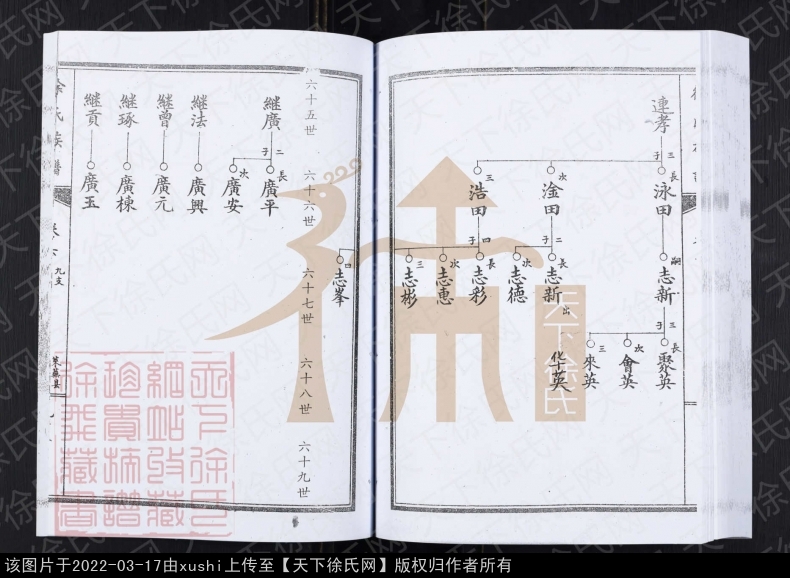 連孝
三子
長 泳田
次 淦田
三 浩田
嗣 志新
二子
長 志新 出
次 志德
四子
長 志彩
次 志惠
三 志彬
三子
長 聚英
次 會英
三 來英
华英
四 志峯
六十五世
六十六世
六十七世
六十八世
六十九世
繼廣
二子
長 廣平
次 廣安
繼法
廣興
繼曾
廣元
繼琢
廣棟
繼貢
廣玉
徐氏族譜
卷六
九支
萊蕪县
天下徐氏
天下徐氏网
该图片于2022-03-17由xushi上传至【天下徐氏网】版权归作者所有